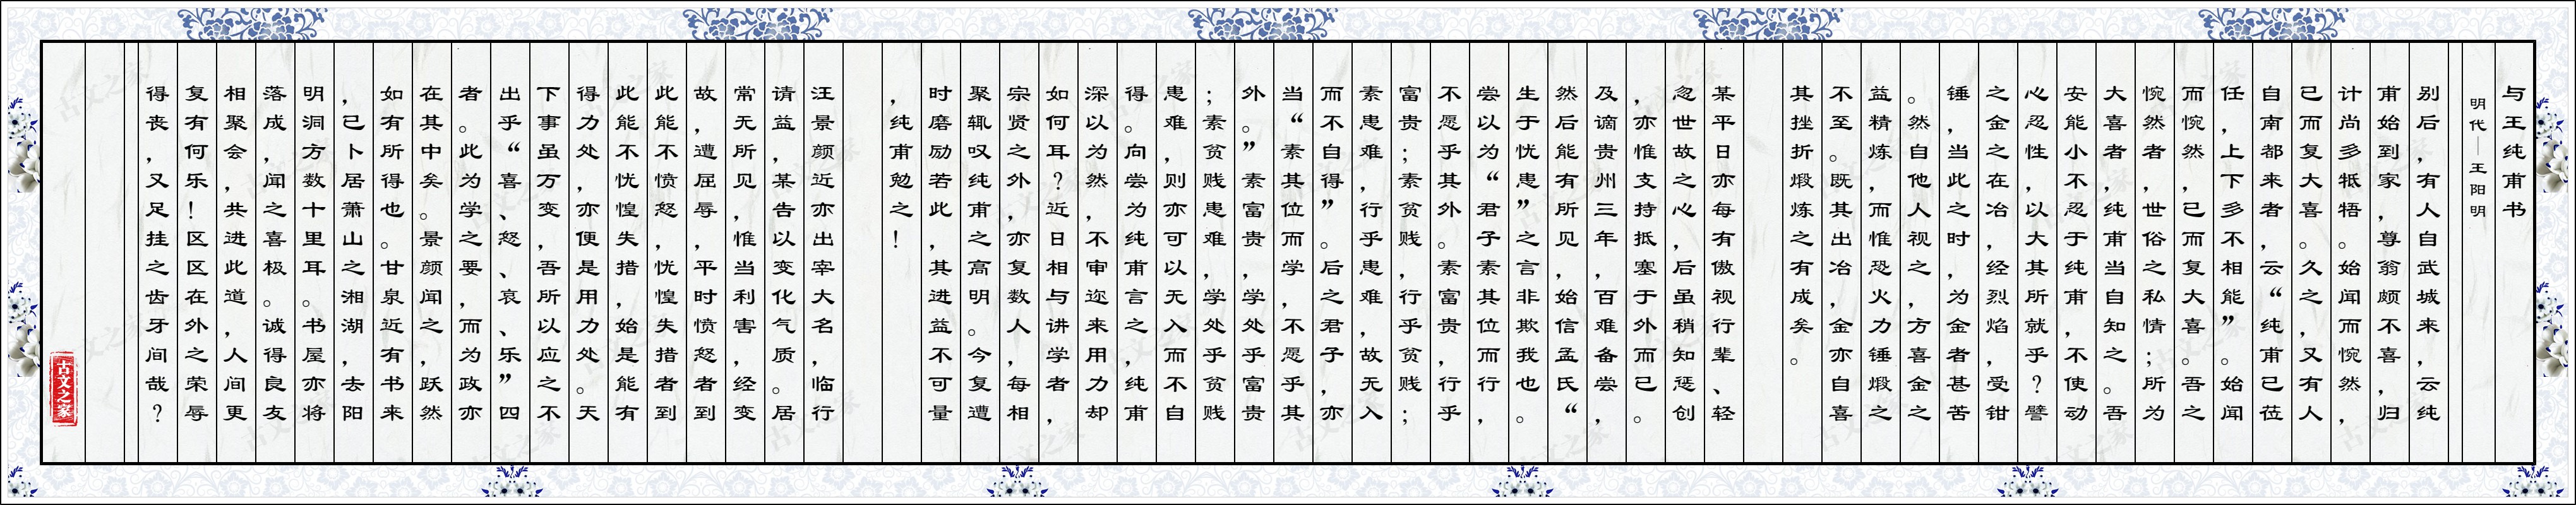 与王纯甫书
明代—王阳明
别后，有人自武城来，云纯
甫始到家，尊翁颇不喜，归
计尚多牴牾。始闻而惋然，
已而复大喜。久之，又有人
自南都来者，云“纯甫已莅
任，上下多不相能”。始闻
而惋然，已而复大喜。吾之
惋然者，世俗之私情；所为
大喜者，纯甫当自知之。吾
安能小不忍于纯甫，不使动
心忍性，以大其所就乎？譬
之金之在冶，经烈焰，受钳
锤，当此之时，为金者甚苦
。然自他人视之，方喜金之
益精炼，而惟恐火力锤煅之
不至。既其出冶，金亦自喜
其挫折煅炼之有成矣。
某平日亦每有傲视行辈、轻
忽世故之心，后虽稍知惩创
，亦惟支持抵塞于外而已。
及谪贵州三年，百难备尝，
然后能有所见，始信孟氏“
生于忧患”之言非欺我也。
尝以为“君子素其位而行，
不愿乎其外。素富贵，行乎
富贵；素贫贱，行乎贫贱；
素患难，行乎患难，故无入
而不自得”。后之君子，亦
当“素其位而学，不愿乎其
外。”素富贵，学处乎富贵
；素贫贱患难，学处乎贫贱
患难，则亦可以无入而不自
得。向尝为纯甫言之，纯甫
深以为然，不审迩来用力却
如何耳？近日相与讲学者，
宗贤之外，亦复数人，每相
聚辄叹纯甫之高明。今复遭
时磨励若此，其进益不可量
，纯甫勉之！
汪景颜近亦出宰大名，临行
请益，某告以变化气质。居
常无所见，惟当利害，经变
故，遭屈辱，平时愤怒者到
此能不愤怒，忧惶失措者到
此能不忧惶失措，始是能有
得力处，亦便是用力处。天
下事虽万变，吾所以应之不
出乎“喜、怒、哀、乐”四
者。此为学之要，而为政亦
在其中矣。景颜闻之，跃然
如有所得也。甘泉近有书来
，已卜居萧山之湘湖，去阳
明洞方数十里耳。书屋亦将
落成，闻之喜极。诚得良友
相聚会，共进此道，人间更
复有何乐！区区在外之荣辱
得丧，又足挂之齿牙间哉？
古文之家